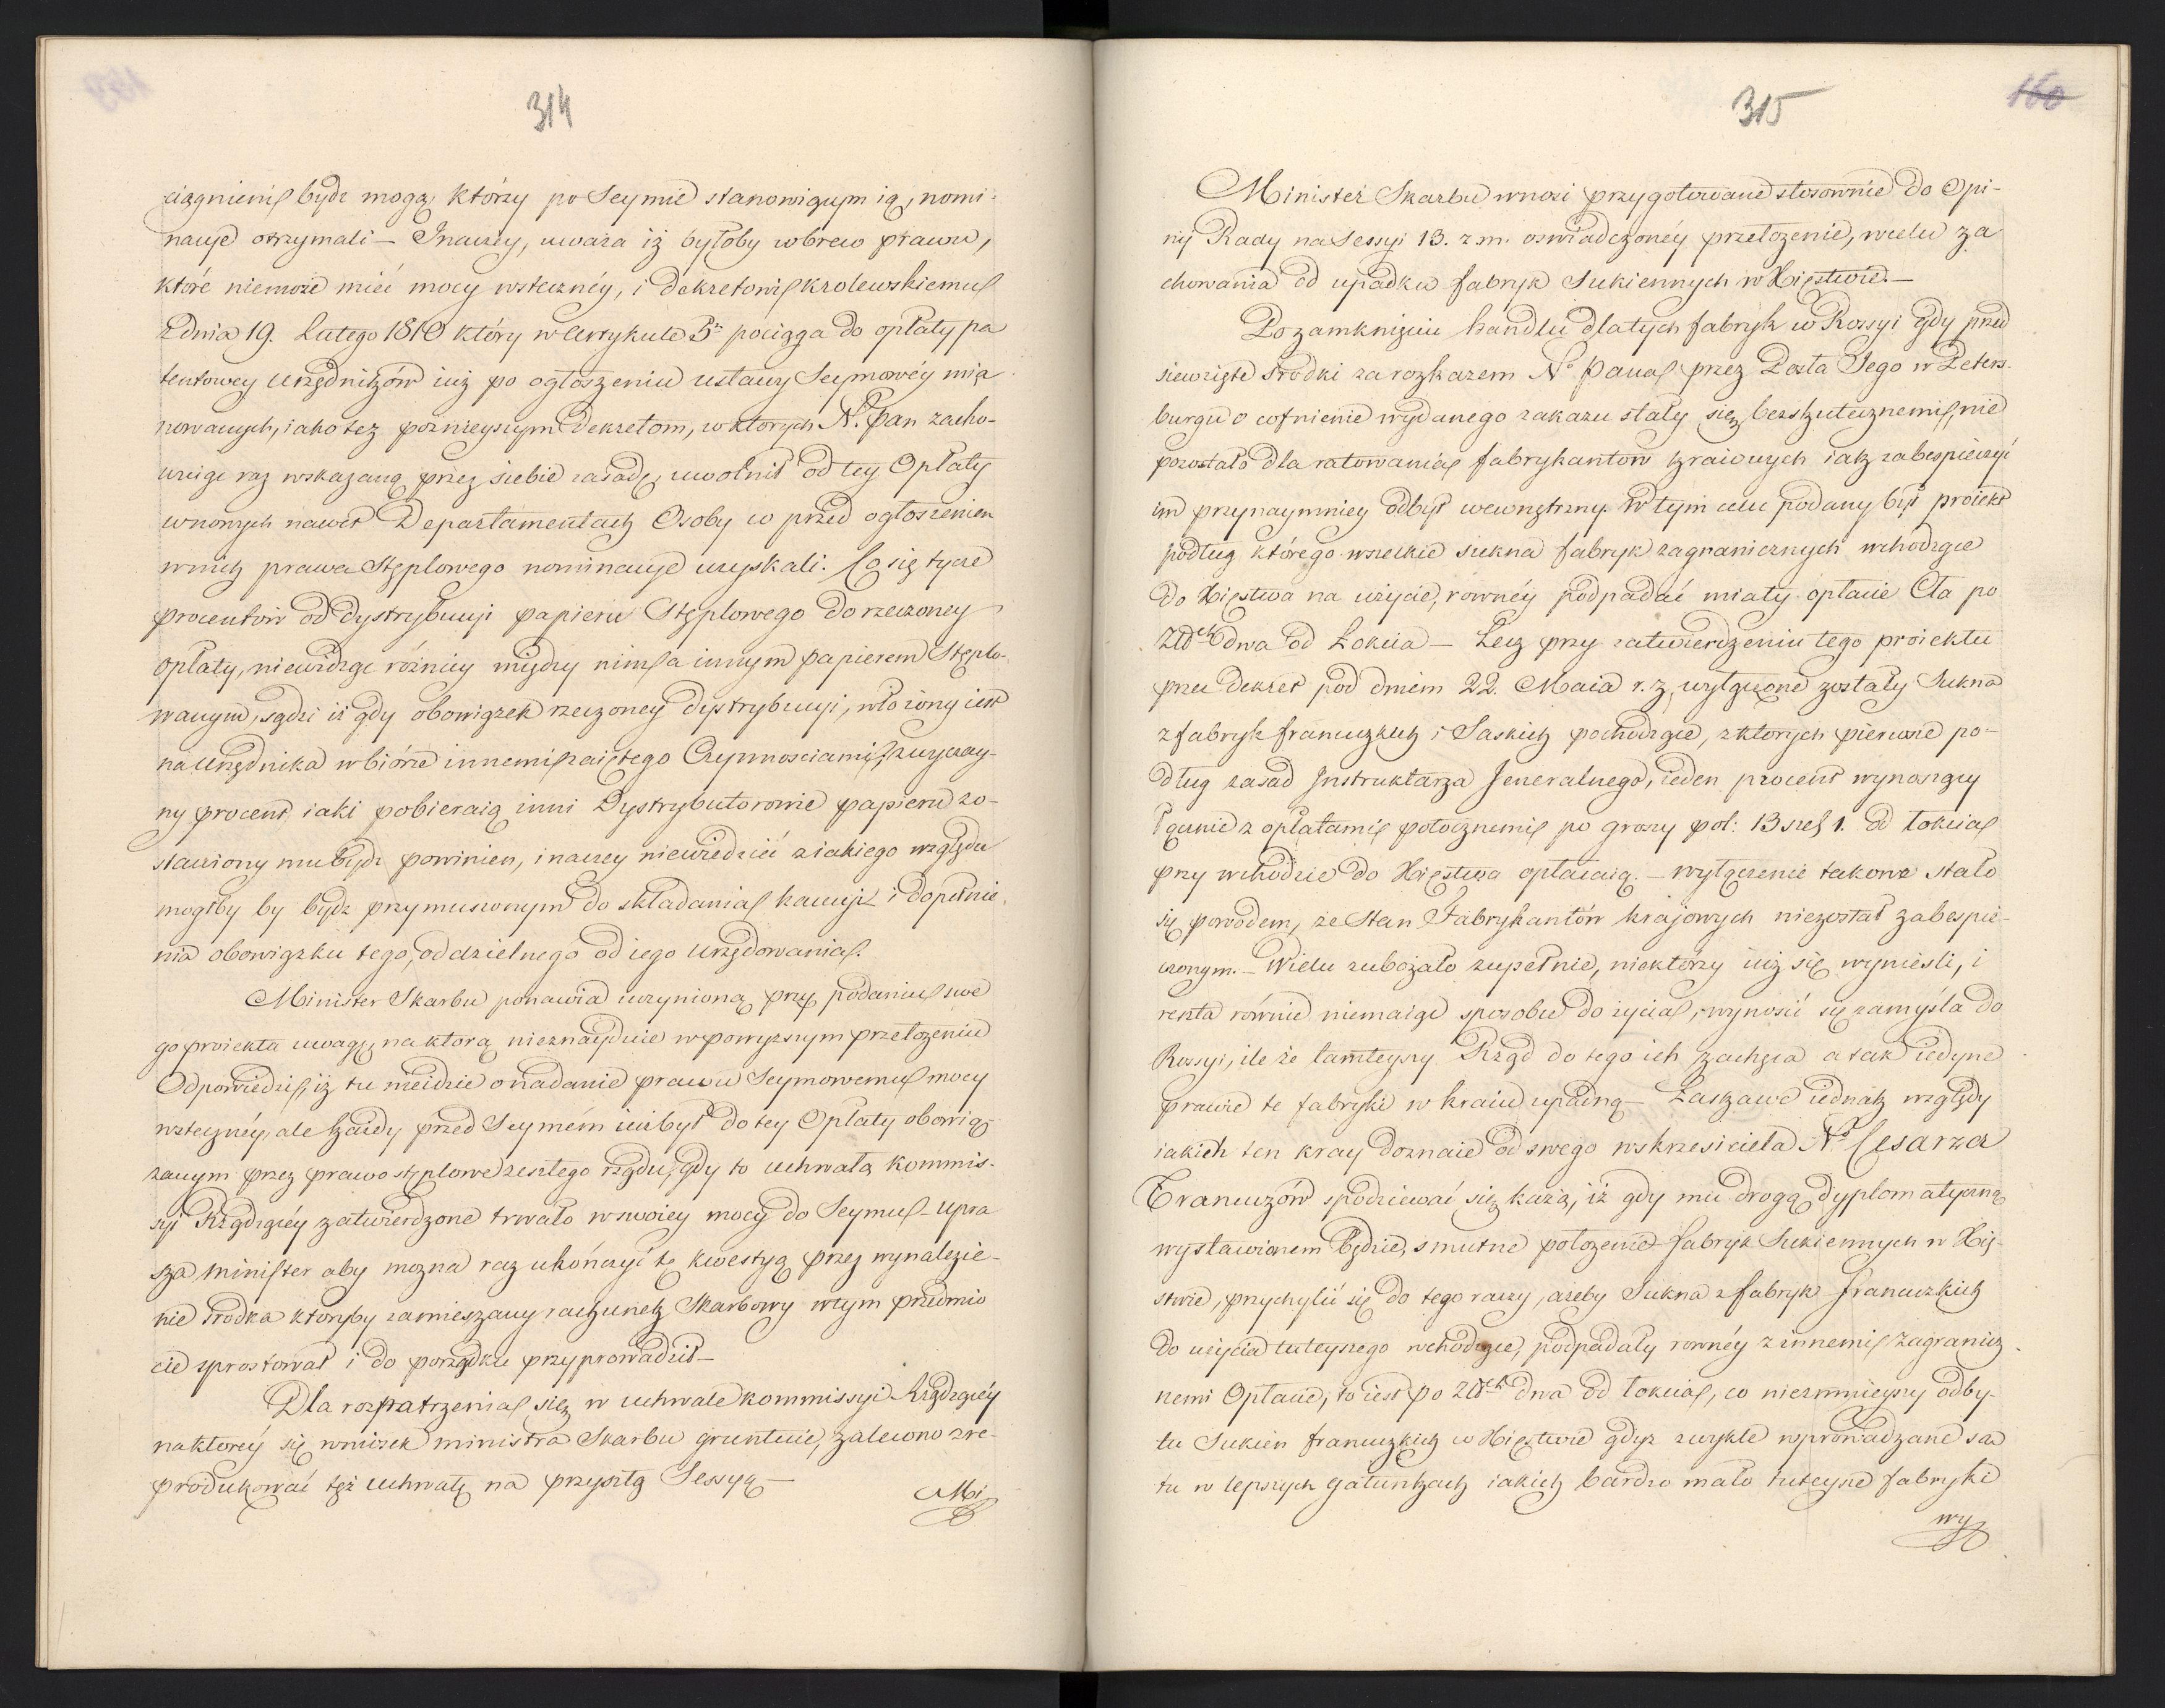 314
ciągnieni bydź mogą, którzy po Seymie stanowiącym ią, nomi-
nacye otrzymali — Inaczey, uważa iż byłoby wbrew prawu,
któré niemoże mieć mocy wsteczney, i Dekretowi krolewskiemu
z dnia 19. Lutego 1810 który w Artykule 3m pociąga do opłaty pa
tentowey urzędników iuż po ogłoszeniu ustawy Seymowéy mia
nowanych, iako też poźnieyszym Dekretom, w ktorych N. Pan zacho-
wuiąc raz wskazaną przez siebie zasadę, uwolnił od tey Opłaty
wnowych nawet Departamentach Osoby co przed ogłoszeniem
wnich prawa Stęplowego nominacye uzyskali. Co się tycze
procentów od dystrybucyi papieru Stęplowego do rzeczoney
opłaty, niewidząc różnicy między nim a innym papierem Stęplo-
wanym, sądzi iż gdy obowiązek rzeczoney dystrybucyi, włożony iest
na Urzędnika w biórze innemi zaiętego Czynnosciami, zwyczay-
ny procent iaki pobieraią inni Dystrybutorowie papieru zo-
stawiony mu bydź powinien, inaczey niewiedzieć z iakiego względu
mogłby by bydź przymuszonym do składania kaucyi i dopełnie-
nia obowiązku tego, oddzielnego od iego urzędowania.
Minister Skarbu ponawia uczynioną przy podaniu swe
go proiektu uwagę, na ktorą nieznayduie w powyższym przełożeniu
Odpowiedzi, iż tu nieidzie o nadanie prawu Seymowemu mocy
wsteczney, ale każdy przed Seymém iuż był do tey Opłaty obowią-
zanym przez prawo stęplowe zeszłego rządu, gdy to uchwałą Kommis-
syi Rządzącéy zatwierdzone trwało w swoiey mocy do Seymu — Upra
sza Minister aby można raz ukończyć tę kwestyą przez wynalezie-
nie środka któryby zamieszany rachunek Skarbowy w tym przedmio
cie sprostował i do porządku przyprowadził —
Dla rozpatrzenia się w uchwale kommissyi Rządzącéy
na ktoréy się wniosek ministra Skarbu gruntuie, zalecono zre-
produkować tęż uchwałę na przyszłą Sessyą —
Mi
315
160
Minister Skarbu wnosi przygotowane stosownie do Opi-
nii Rady na Sessyi 13. z m. oswiadczonéy przełożenie, wcelu za
chowania od upadku fabryk Sukiennych w Xięstwie. —
Po zamknięciu handlu dla tych fabryk w Rossyi gdy przed
siewzięte srodki za rozkazem No Pana przez Posła Jego w Peters-
burgu o cofnienie wydanego zakazu stały się bezskutecznemi, nie
pozostało dla ratowania fabrykantów kraiowych iak zabespieczyć
im przynaymniey odbyt wewnętrzny. W tym celu podany był proiekt
podług którego wszelkie sukna fabryk zagranicznych wchodzące
do Xięstwa na użycie, równéy podpadać miały opłacie Cła po
Złch dwa od Łokcia — Lecz przy zatwierdzeniu tego proiektu
przez dekret pod dniem 22. Maia r. z. wyłączone zostały Sukna
z fabryk francuzkich i Saskich pochodzące, z ktorych pierwsze po-
dług zasad Instruktarza Jeneralnego, ieden procent wynoszący
łącznie z opłatami potocznemi po groszy pol: 13 szel 1. od Łokcia
przy wchodzie do Xięstwa opłacaią. — wyłączenie takowe stało
się powodem, że Stan Fabrykantów krajowych niezostał zabespie-
czonym. — Wielu zubożało zupełnie, niektórzy iuż się wyniésli, i
reszta równie niemaiąc sposobu do życia, wynosić się zamyśla do
Rossyi, ile że tamteyszy Rząd do tego ich zachęca a tak iedyne
prawie te fabryki w kraiu upadną — Łaskawe iednak względy
iakich ten kray doznaie od swego wskrzesiciela No Cesarza
Francuzów spodziewać się każą, iż gdy mu drogą dyplomatyczną
wystawionem będzie, smutne położenie fabryk Sukiennych w Xię-
stwie, przychylić się do tego raczy, ażeby Sukna z fabryk francuzkich
do użycia tuteyszego wchodzące, podpadały rownéy z innemi zagranicz-
nemi Opłacie, to iest po Złch dwa od Łokcia, co niezmnieyszy odby-
tu Sukien francuzkich w Xięstwie gdyż zwykle wprowadzane są
tu w lepszych gatunkach iakich bardzo mało tuteysze fabryki
wy